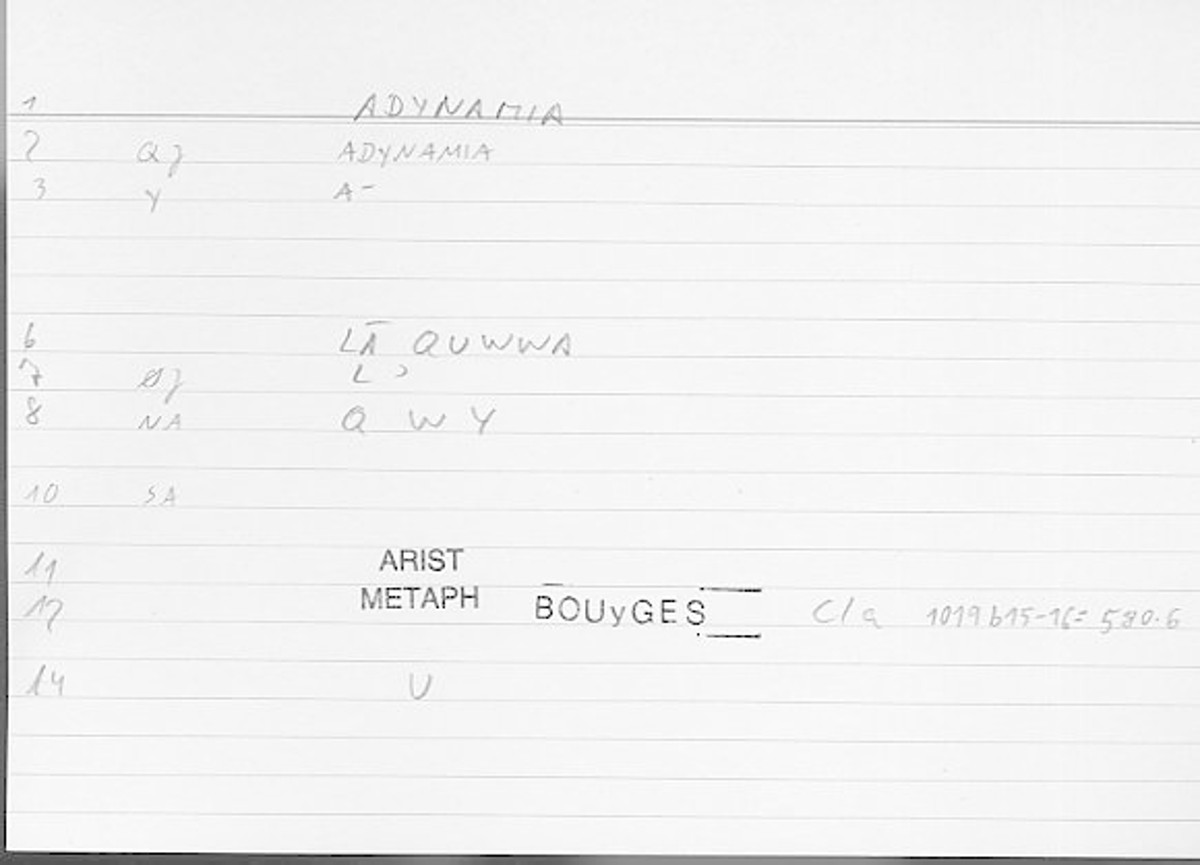 1 ADYNAMIA
2 QJ ADYNAMIA
3 Y A-
6 LĀ QUWWA
7 ØJ L ʾ
8 NA Q W Y
10 SA
11 ARIST
12 METAPH BOUyGES C/a 1019b15-16= 580.6
14 U